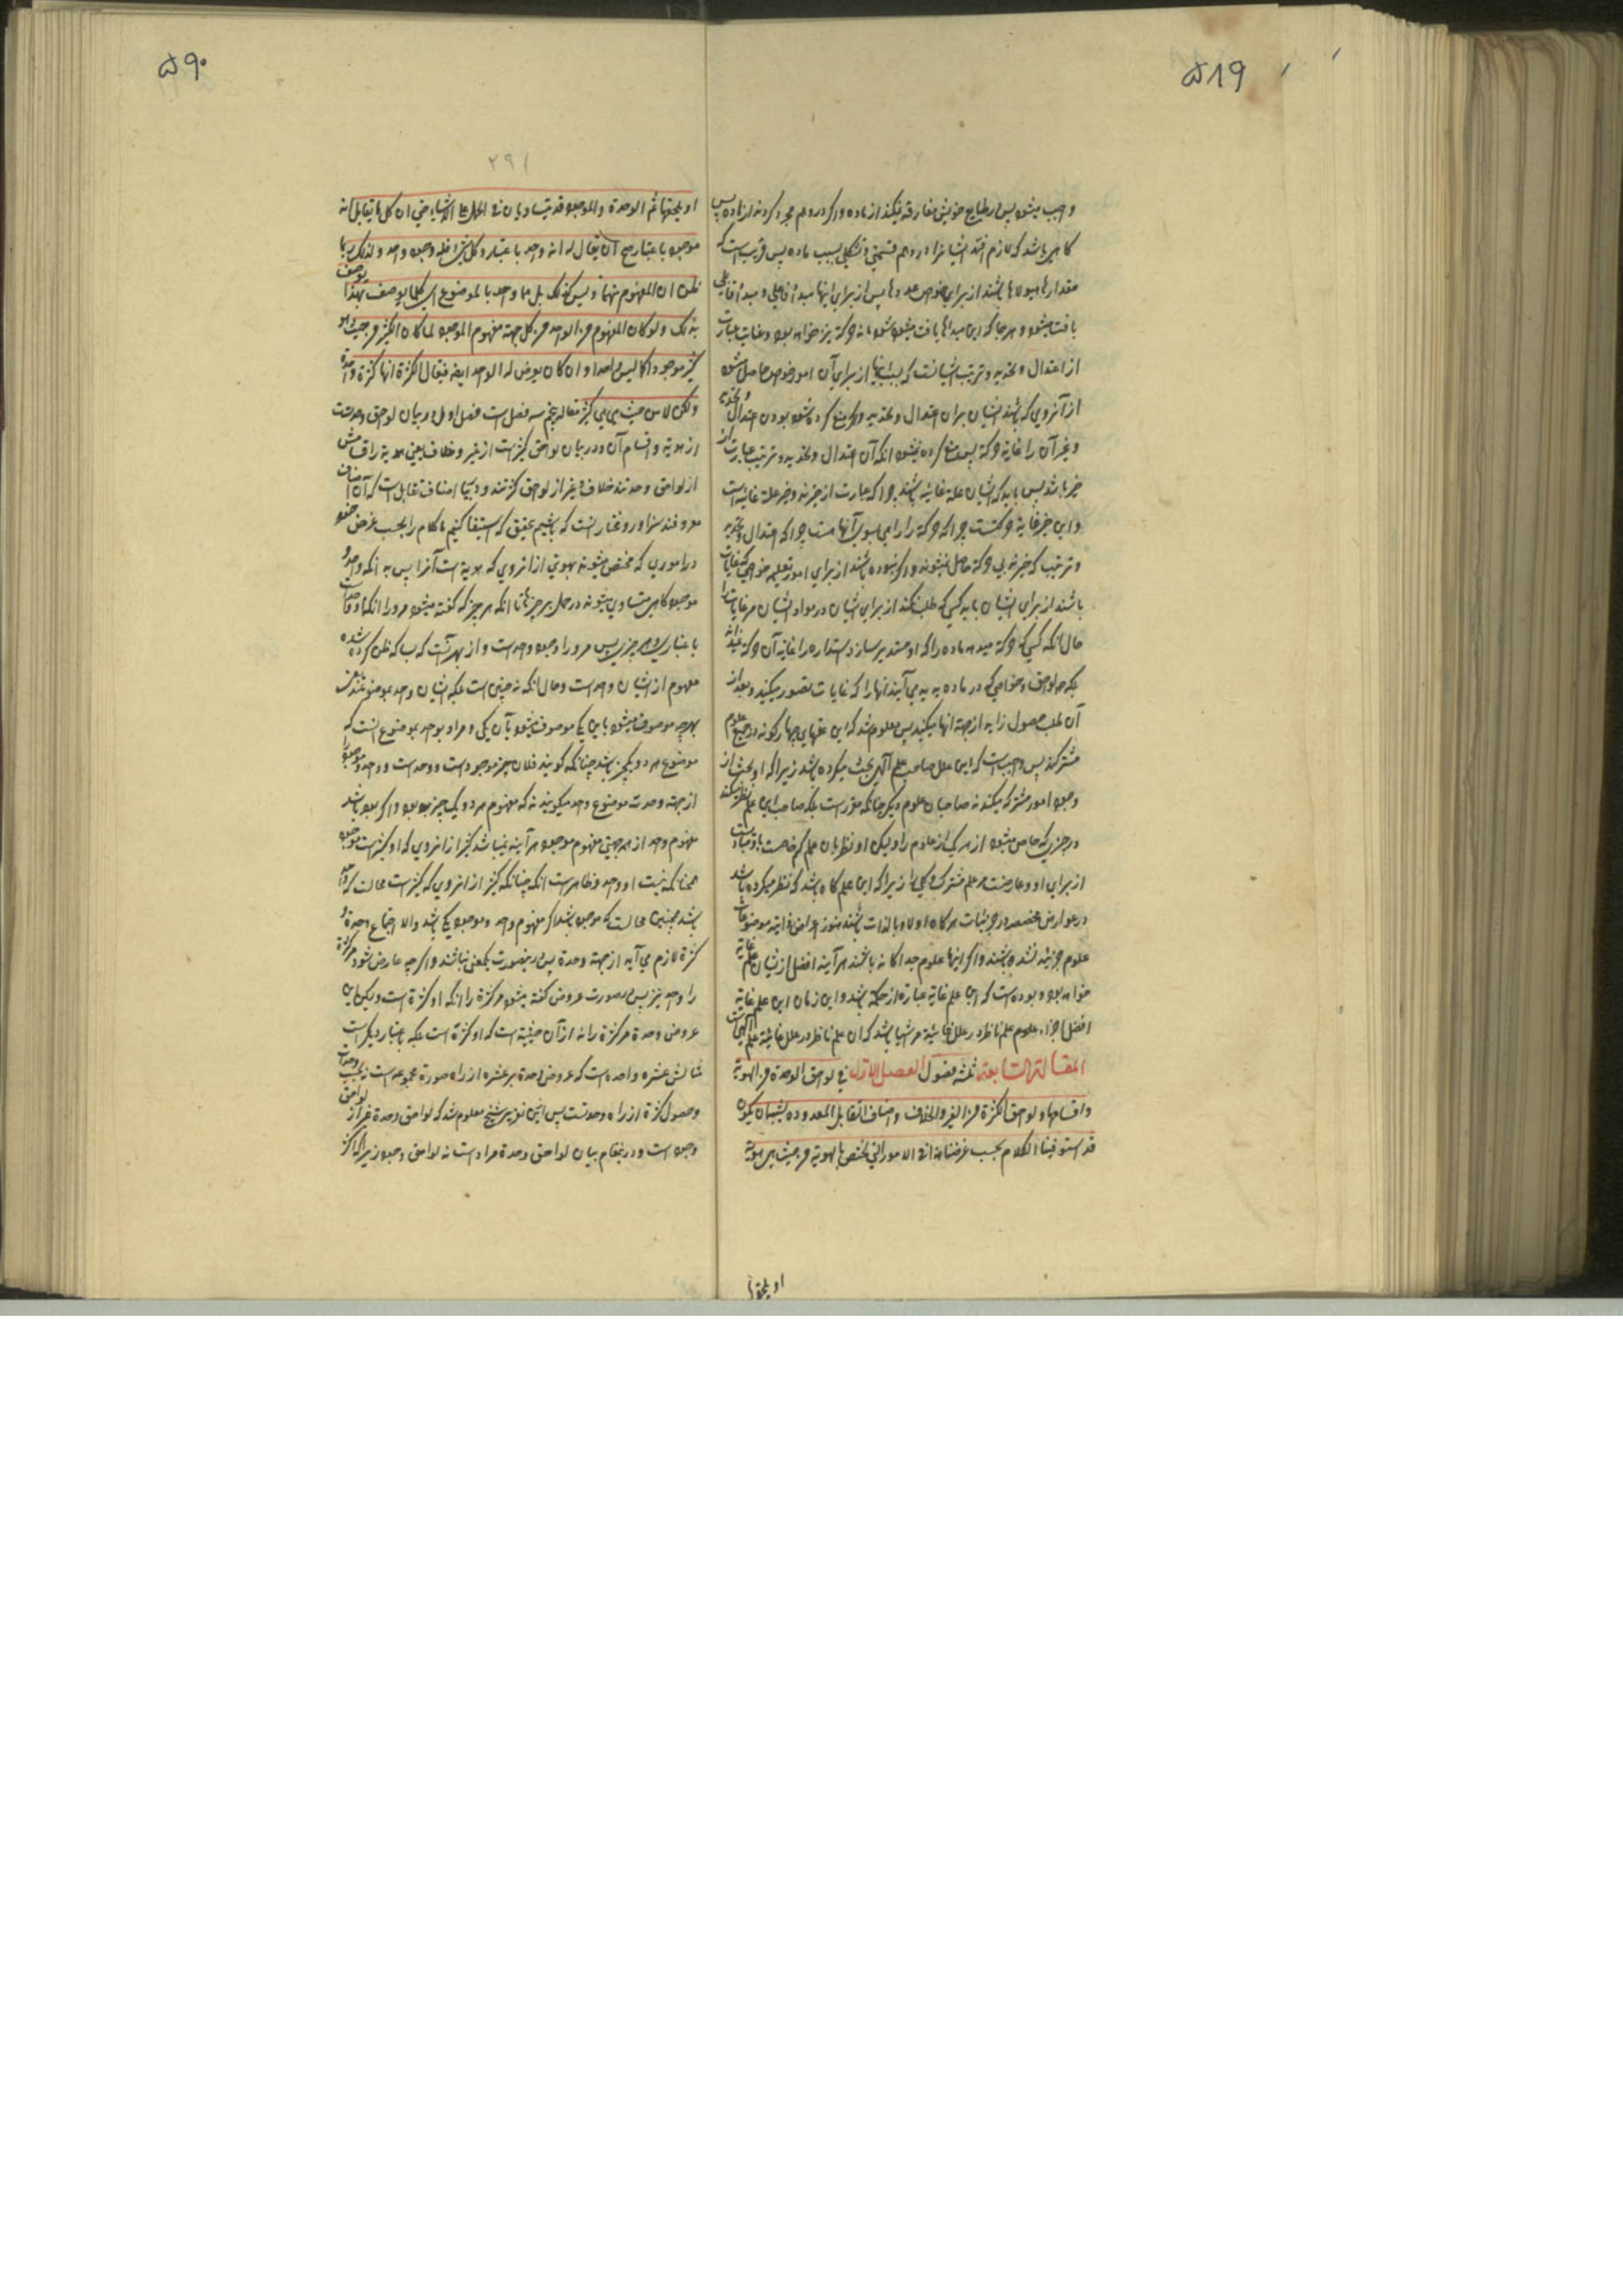 ۵۸۹
واجب میشود پس ارطباع خویش مفارقه نمیکند از ماده و اگر در وهم مجرد کردند از ماده پس
کاهی باشد که لازم افتد ایشانرا در وهم قسمتی و تشکلی بسبب ماده پس قریب است که
مقدارها هیولاها باشند از برای خواص عددها پس از برای اینها مبدأ فاعلی و مبدأ قابلی
یافت میشود و هرجا که این مبدأها یافت میشوند تمامیه حرکة نیز خواهد بود و غایت عبارت
از اعتدال و تحدید و ترتیب ایشانست که بسبب اینها از برای آن امور خواص حاصل میشود
از آنروی که باشند ایشان بران اعتدال و تحدید و اگر منع کرده شود بودن اعتدال و تحدید
و غیر آن را غایة حرکة پس منع کرده نمیشود آنکه آن اعتدال و تحدید و ترتیب عبارت از
خیر باشد پس باید که ایشان علة غائیه باشند چرا که عبارت از خیرند و خیر علة غائیه است
و این خیر غایة حرکتست چرا که حرکة را راهی بسوی آنها هست چرا که اعتدال و تحدید
و ترتیب که خیرند بی حرکة حاصل نمیشوند و اگر نبوده باشند از برای امور تعلیمیه خواصی که غایات
باشند از برای ایشان باید کسی که طلب نکند از برای ایشان در مواد ایشان مر غایات را
حال آنکه کسی که حرکة میدهد ماده را که او مستدیر سازد استداره را غایة آن حرکة
بلکه لواحق و خواصی که در ماده پدید می آیند آنها را که غایات تصور میکنند و بعد از
آن طلب حصول زاویه از جهة آنها میکنند پس معلوم شد که این علتهای چهارگونه در جمیع علوم
مشترکند پس واجب است که این علل صاحب علم آلهی بحث میکرده باشد زیرا که او بحث از
وجود امور مشترکه میکند نه صاحبان علوم دیگر چنانکه مقرر است بلکه صاحب این علم نظر میکند
در چیزی که خاص میشود از هر یک از علوم را
از برای او و عارضند مر علم مشترک کلی را زیرا که این علم گاه باشد که نظر میکرده باشد
در عوارض مخصصه در جزئیات هرگاه اولا و بالذات باشند هنوز اعراض ذاتیه موضوعات
علوم جزئیه نشده باشند و اگر اینها علوم جداگانه باشند هر آینه افضل از ایشان علم غایة
خواهد بود و بوده است که این علم غایة عبارة از حکمة باشد و این زمان این علم غایة
افضل اجزاء علوم علم ناظر در علل غائیه مر اشیا باشد که ان علم ناظر در علل غائیه علم آلهیست
المقالة السابعة ثلثة فصول الفصل الاول فی لواحق الوحدة من الهویة
واقسامها و لواحق الکثرة من الغیر والخلاف واصناف التقابل المعدوده یشبه ان یکون
قد استوفینا الکلام بحسب غرضنا هذا فی الامور التی تختص بالهویة من حیث هی هویة
او یلحقها
۵۹۰
۲۹۱
او یلحقها ثم الوحدة والموجود قد یتساویان فی الحمل علی الاشیاء حتی ان کل ما یقال له انه
موجود باعتبار صح ان یقال له انه واحد باعتبار و کل شیٔ فله وجود واحد ولذلک ربما
ظن ان المفهوم منهما واحد ولیس کذلک بل هما واحد بالموضوع ای کلما یوصف بهذا یوصف
بذلک ولو کان المفهوم من الواحد من کل جهة مفهوم الموجود لما کان الکثیر من حیث هو
کثیر موجودا کما لیس واحدا وان کان یعرض له الواحد ایضا فیقال للکثرة انها کثرة واحدة
ولکن لا من حیث هی کثیرة مقاله هفتم سه فصل است فصل اول در بیان لواحق وحدت
از هویة و اقسام آن و در بیان لواحق کثرت از غیر و خلاف یعنی هویة را اقسامش
از لواحق وحدتند خلاف و غیر از لواحق کثرتند و در بیان اصناف تقابل است که آن اصناف
معروفند سزاوار و مختار آنست که باشیم بتحقیق که استیفا کنیم ما کلام را بحسب غرض خود
در اموری که مختص میشوند بهویتی از آنروی که هویة است آنرا پس بدانکه واحد و
موجود گاهی متساوی میشوند در حمل بر چیزها تا آنکه هر چیز که گفته میشود مر او را آنکه او موجود است
باعتباری و هر چیزی پس مر او را وجود واحد است و از بهر آنست که بسا که ظن کرده شده
مفهوم از ایشان واحد است و حال آنکه نه چنین است بلکه ایشان واحد بموضوعند یعنی
بهرچه موصوف میشود باین یکی موصوف میشود بآن یکی و مراد بواحد بموضوع آنست که
موضوع هر دو یکچیز باشد چنانکه گویند فلان چیز موجود است و واحد است و واحد و موجود را
از جهة وحدت موضوع واحد میگویند نه که مفهوم هر دو یک چیز بود و اگر بود باشد
مفهوم واحد از هر جهتی مفهوم موجود هر آینه نمیباشد کثیر از آنروی که او کثیر است موجود
همچنانکه نیست او واحد و ظاهر است آنکه چنانکه کثیر از آنروی که کثیر است محالست که واحد
باشد همچنین محالست که موجود باشد اگر مفهوم واحد و موجود یکی باشد والا اجتماع وحدة و
کثرة لازم می آید از جهة وحدة پس درینصورت یکمعنی نباشند و اگرچه عارض شود مر کثرة
را واحد نیز پس درصورت عروض گفته میشود مر کثرة را آنکه او کثرة است ولیکن این
عروض وحدة مر کثرة را نه از آن حیثیة است که او کثرة است بلکه باعتبار دیگر است
مثالش عشره واحده است که عروض وحدة بر عشره از راه صورة مجموعه است
وحصول کثرة از راه وحدتست پس ازین تقریر شیخ معلوم شد که لواحق وحدة غیر از لواحق
وجود است و درینمقام بیان لواحق وحدة مراد است نه لواحق وجود زیرا که اکثر